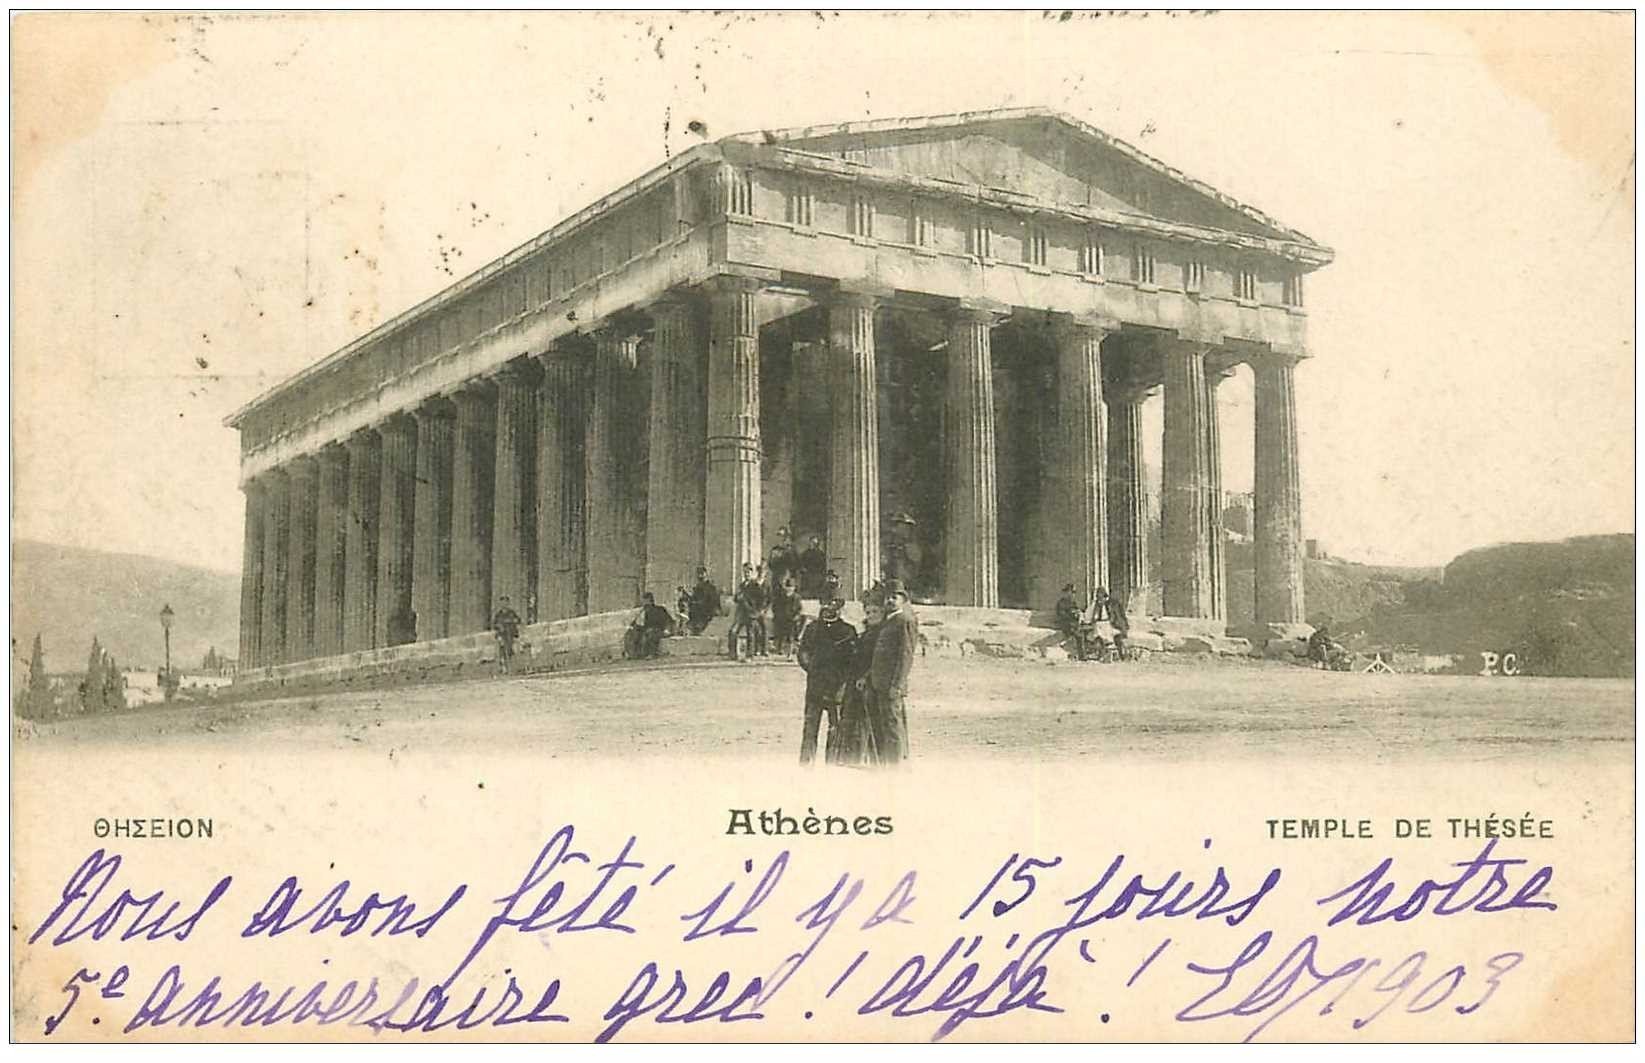 P.C.
ΘΗΣΕΙΟΝ
Athènes
TEMPLE DE THÉSÉE
Nous avons fêté il y a 15 jours notre
5.e anniversaire grec ! déjà ! 1903